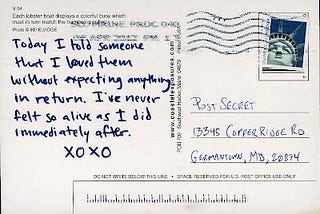 V 04
Each lobster boat displays a colorful buoy which
must in turn match the
Photo © ED ELVIDGE
Today I told someone
that I loved them
without expecting anything
in return. I've never
felt so alive as I did
immediately after.
XOXO
www.coastalexposurea.com
Southwest Harbor, Maine 04679
USA
Post Secret
13345 Copper Ridge Rd
Germantown, MD, 20874
DO NOT WRITE BELOW THIS LINE • SPACE RESERVED FOR U.S. POST OFFICE USE ONLY